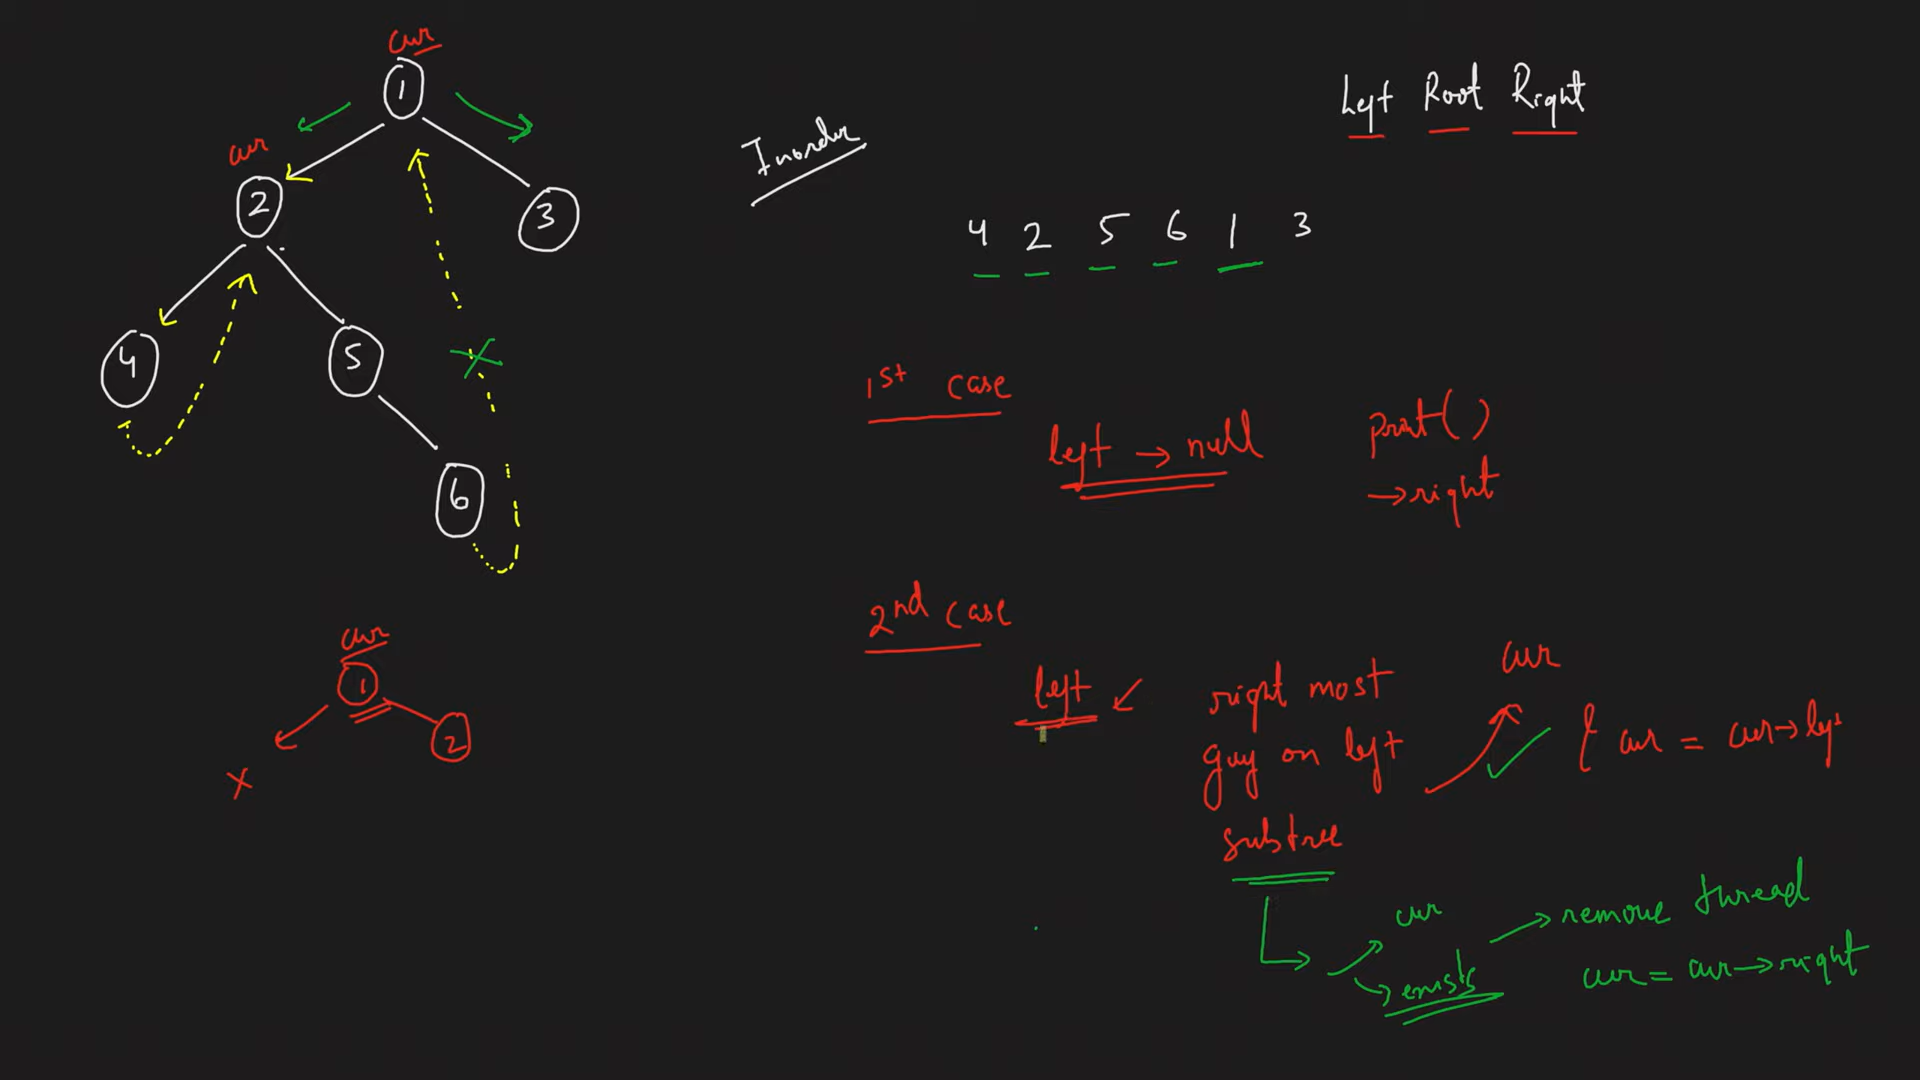 cur
1
cur
2
3
4
5
6
Left Root Right
Inorder
4 2 5 6 1 3
1st case
left → null
print()
→ right
2nd case
left
right most
guy on left
subtree
cur
cur = cur → lef
cur
exists
→ remove thread
cur = cur → right
cur
1
2
X